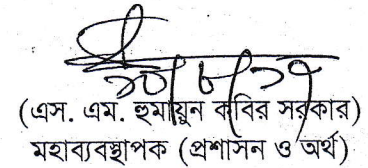 ২০/৮/১৭
(এস. এম. হুমায়ুন কবির সরকার)
মহাব্যবস্থাপক (প্রশাসন ও অর্থ)